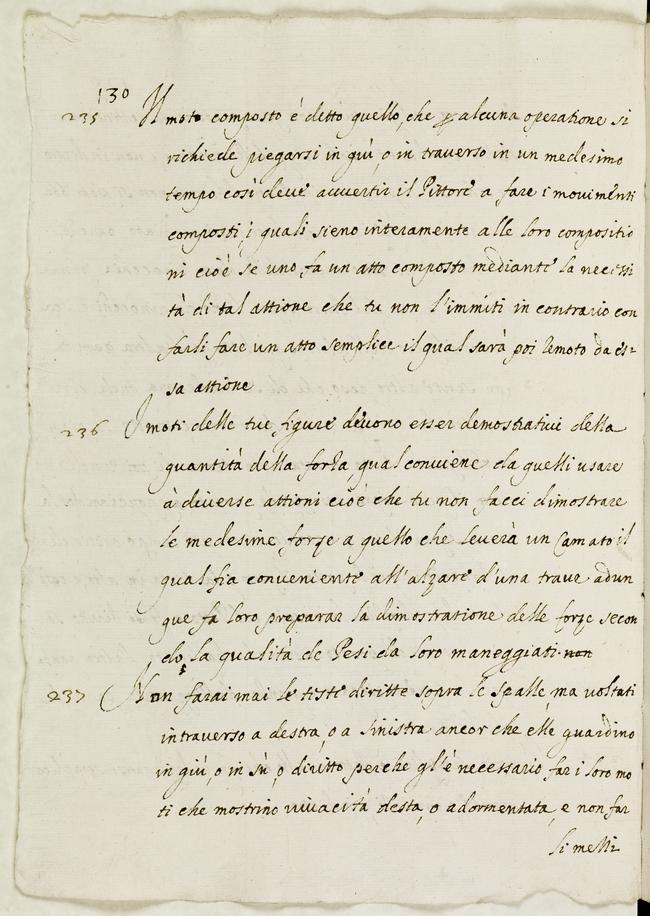 130
235 Il moto composto è detto quello, che p alcuna operatione si
richiede piegarsi in giù, o in traverso in un medesimo
tempo così deve avvertir il Pittore a fare i movimenti
composti, i quali sieno interamente alle loro compositio
ni cioè se uno fa un atto composto mediante la necessi
tà di tal attione che tu non l'immiti in contrario con
farli fare un atto semplice il qual sarà poi remoto da es-
sa attione
236 I moti delle tue figure devono esser demostrativi della
quantità della forza, qual conviene da quelli usare
à diverse attioni cioè che tu non facci dimostrare
le medesime forze a quello che leverà un Camato il
qual fia conveniente all'alzare d'una trave adun
que fa loro preparar la dimostratione delle forze secon
do la qualità de Pesi da loro maneggiati non
237 Non farai mai le teste diritte sopra le spalle, ma voltati
intraverso a destra, o a sinistra ancor che elle guardino
in giù, o in sù, o diritto perche gl'è necessario far i loro mo
ti che mostrino vivacità desta, o adormentata, e non far
li melli